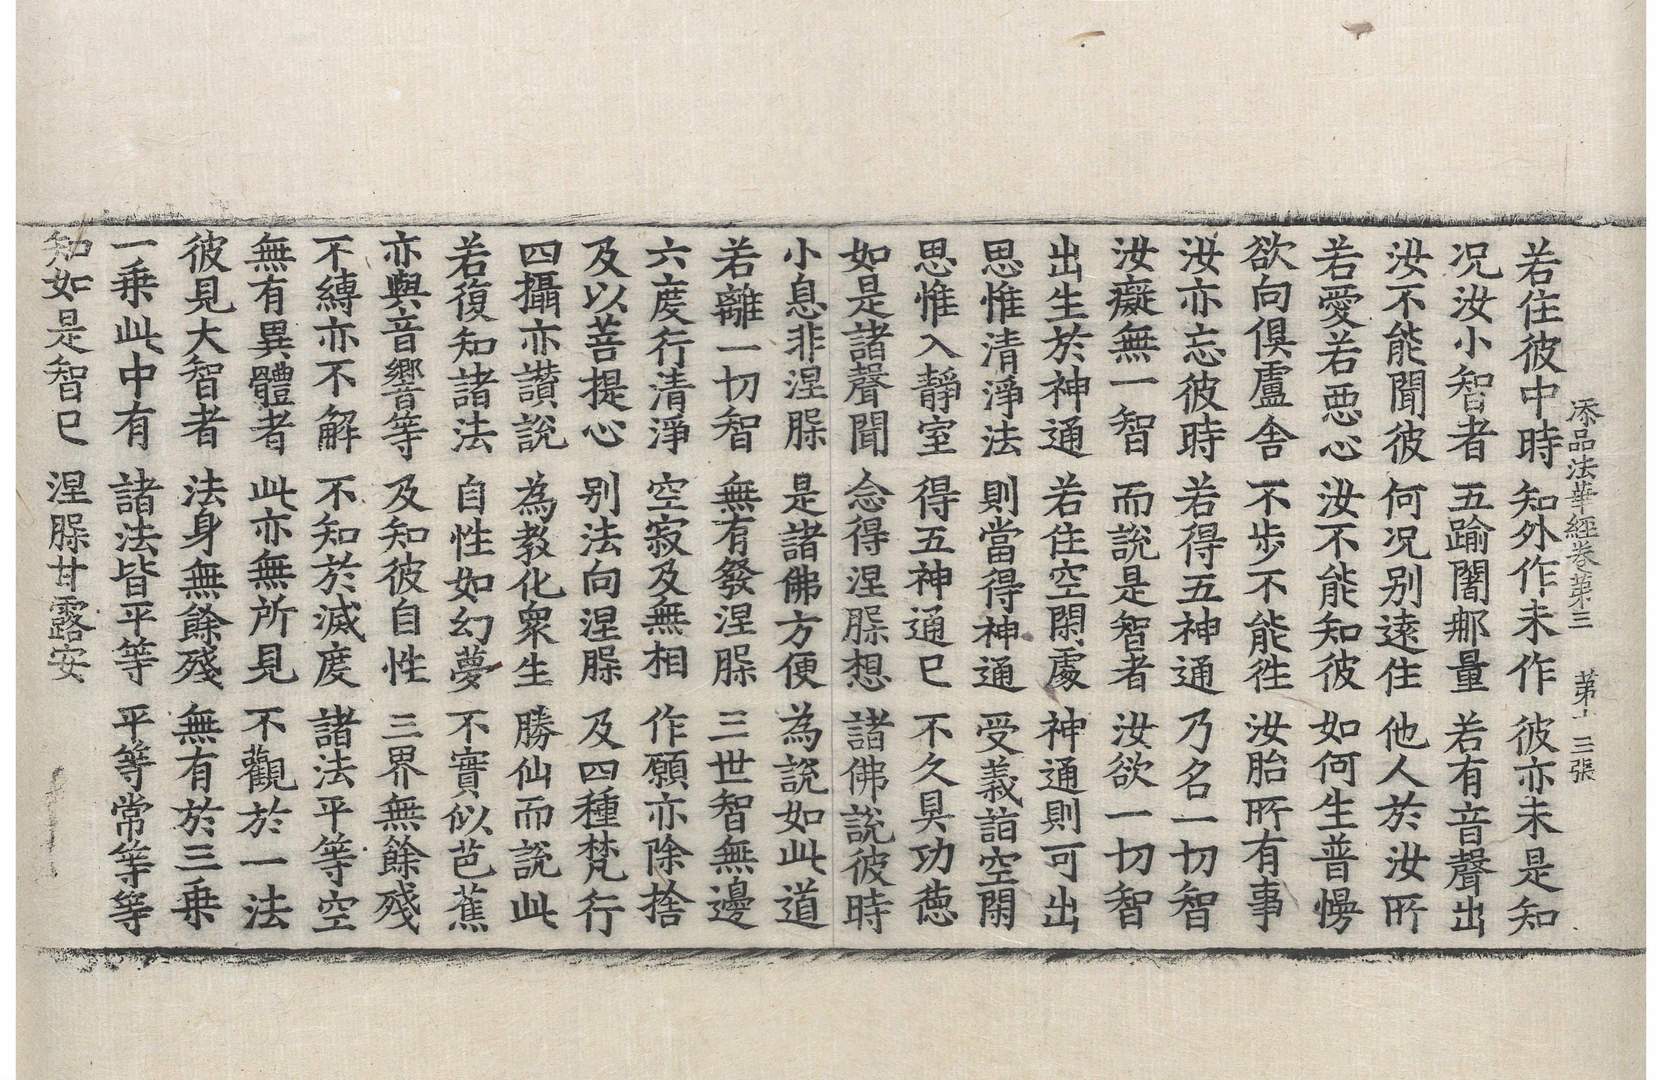 添品法華經卷第三　第十三張
若住彼中時　知外作未作　彼亦未是知
况汝小智者　五踰闍那量　若有音聲出
汝不能聞彼　何况别遠住　他人於汝所
若愛若惡心　汝不能知彼　如何生普慢
欲向俱盧舍　不步不能徃　汝胎所有事
汝亦忘彼時　若得五神通　乃名一切智
汝癡無一智　而說是智者　汝欲一切智
出生於神通　若住空閑處　神通則可出
思惟清淨法　則當得神通　受義詣空閑
思惟入靜室　得五神通已　不久具功德
如是諸聲聞　念得涅䏶想　諸佛說彼時
小息非涅䏶　是諸佛方便　為說如此道
若離一切智　無有發涅䏶　三世智無邊
六度行清淨　空寂及無相　作願亦除捨
及以菩提心　别法向涅䏶　及四種梵行
四攝亦讃說　為教化衆生　勝仙而說此
若復知諸法　自性如幻夢　不實似芭蕉
亦與音響等　及知彼自性　三界無餘殘
不縛亦不解　不知於滅度　諸法平等空
無有異體者　此亦無所見　不觀於一法
彼見大智者　法身無餘殘　無有於三乗
一乗此中有　諸法皆平等　平等常等等
知如是智已　涅䏶甘露安